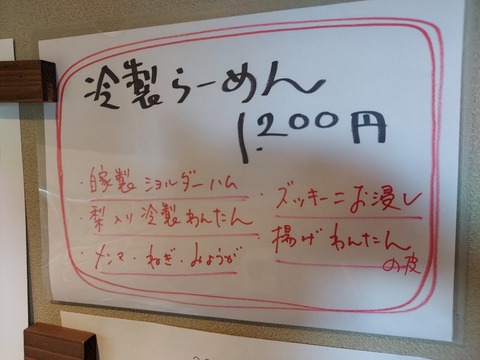 冷製らーめん
1.200円
・自家製ショルダーハム
・梨入り冷製わんたん
・メンマ・ねぎ・みょうが
・ズッキーニお浸し
・揚げわんたん
の皮